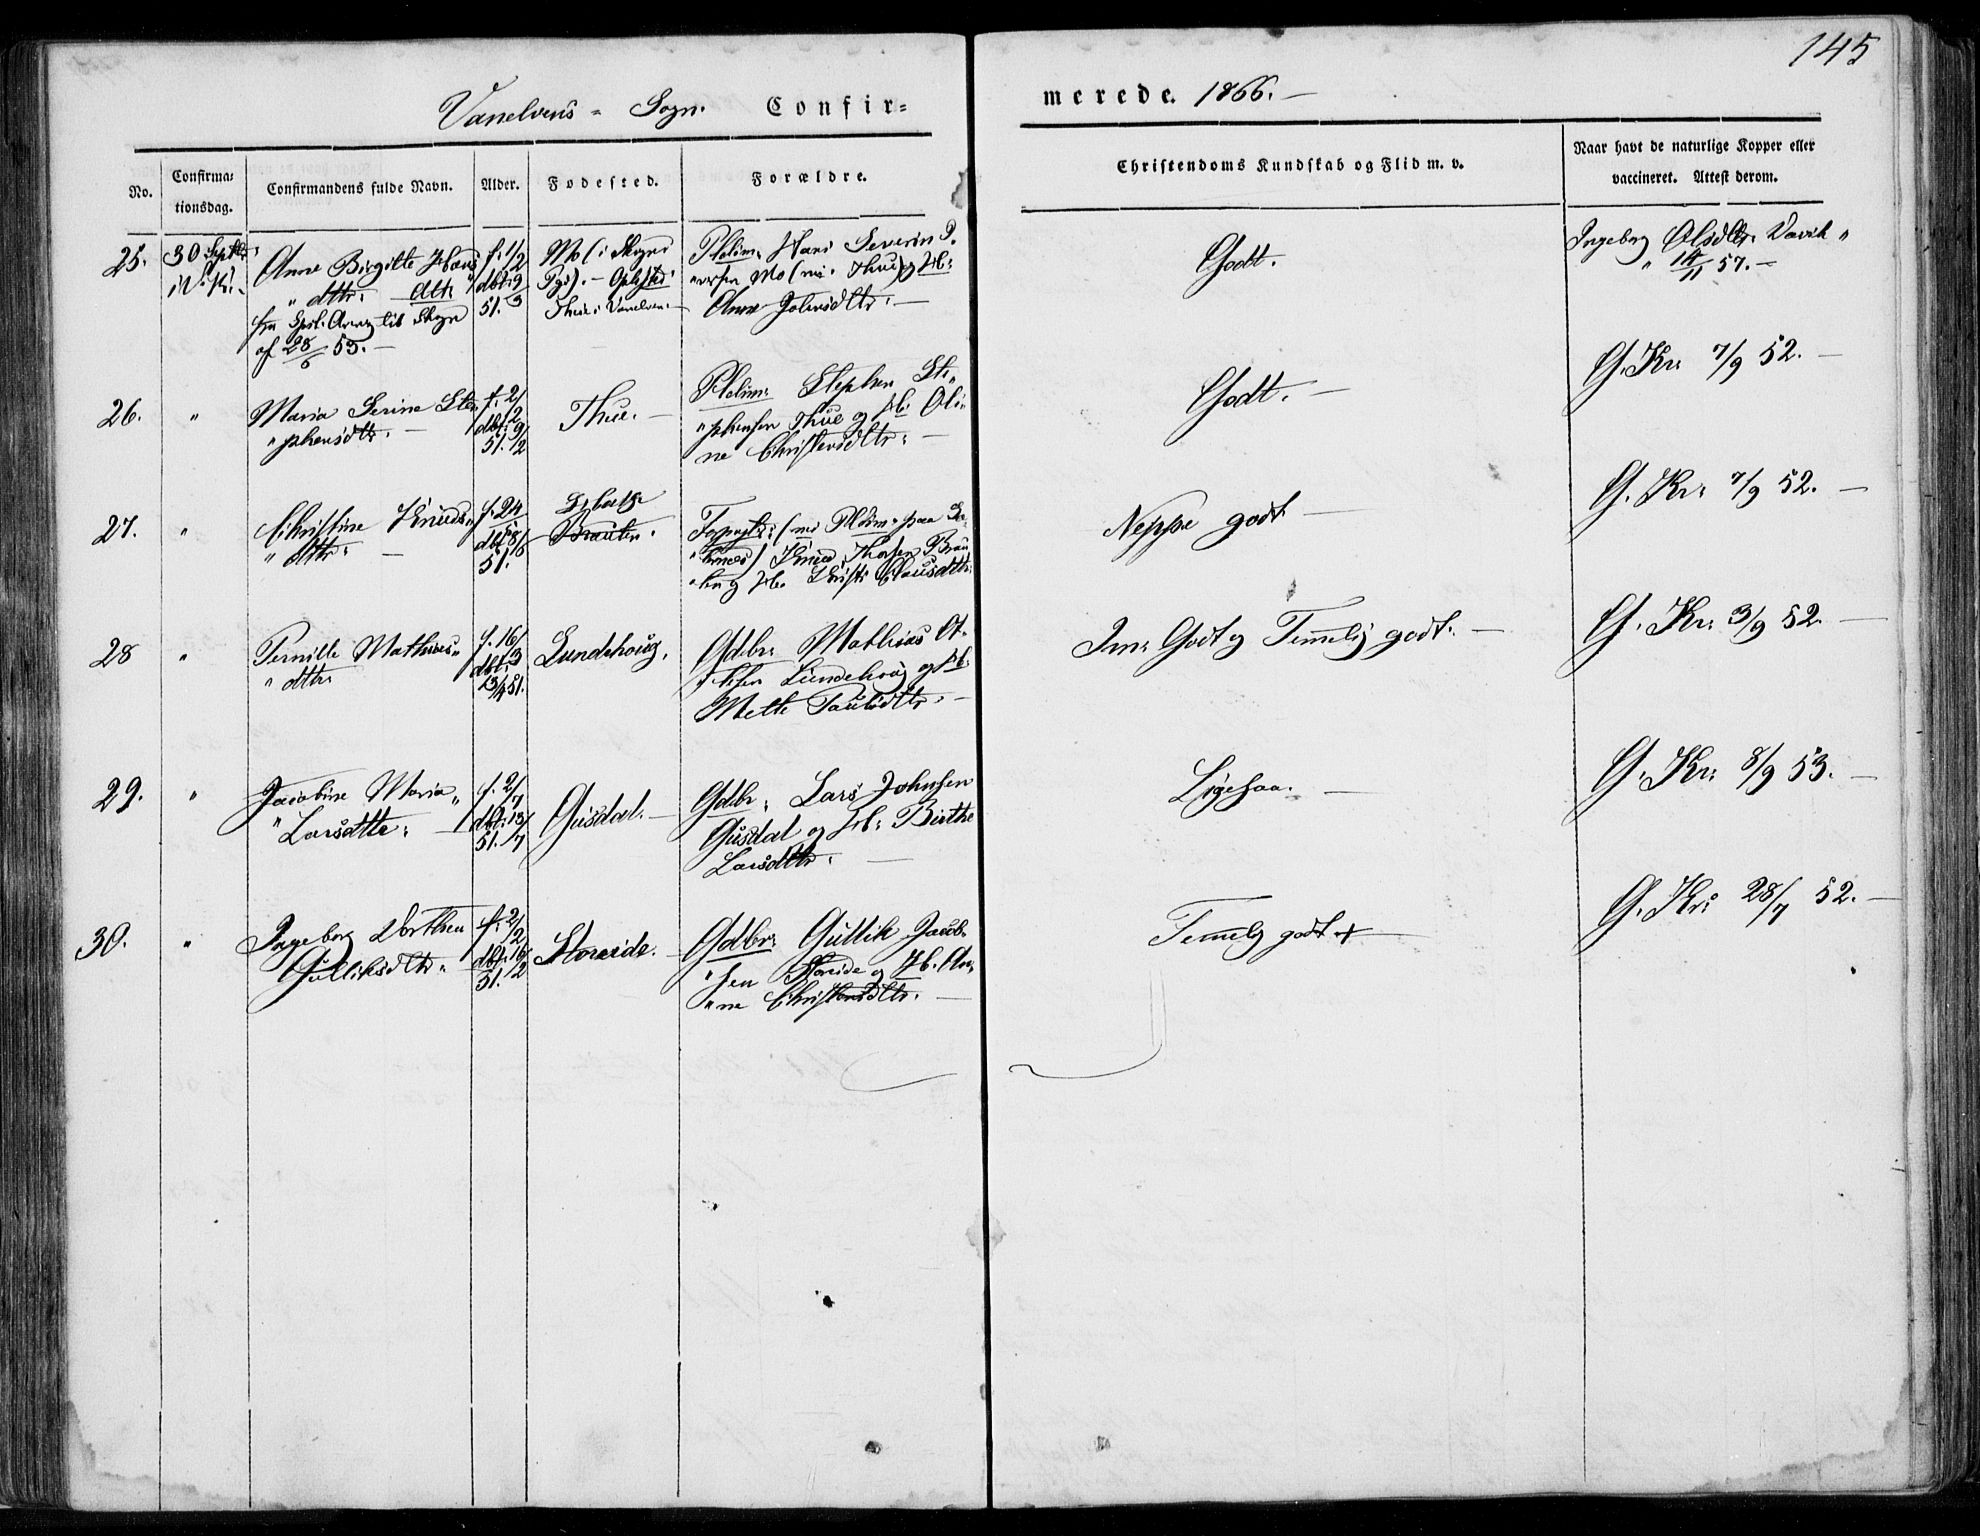 145
Vanelvens - Sogn. Confir=
merede. 1866. —
No.
Confirma=
tionsdag.
Confirmandens fulde Navn.
Alder.
Fødested.
Forældre.
Christendoms Kundskab og Flid m. v.
Naar havt de naturlige Kopper eller
vaccineret. Attest derom.
25.
30 Septbr:
i V. Ki:
Anne Birgitte Hans
" dttr. dttr
fra
til Skyn
af 28/6 53. —
f. 1/2
dbt: 9/3
51.
Mo (i
Pgj). —
Thue i Vanelven. —
Pldsm: Hans Severin P.
Mo (nu. Thue) og Hb:
Anne
Godt.
Ingeborg Olsdttr. Vavik "
" 14/11 57. —
26.
"
Maria Serine Ste"
" phensdtr. —
f. 2/2
dbt: 9/2
51.
Thue. —
Pldsm: Stephen Ste"
" phensen Thue og Hb. Oli"
ne Christensdttr: —
Godt. —
G. Kr: 7/9 52. —
27.
"
Christine Knuds"
" dttr: —
f. 24/5
dbt: 8/6
51.
Brauten.
(nu Pldsm: paa
Knud
og Hb. Clausdttr:
Neppe godt —
G. Kr: 7/9 52. —
28
"
Pernille Mathias"
" dttr:
f. 16/3
dbt:
13/4 51.
Lundehoug.
Gdbr: Mathias Ot"
Lundehoug og Hb:
Mette Paulsdttr. —
Im: Godt og Temmelig godt. —
G. Kr: 3/9 52. —
29.
"
Jacobine Maria "
" Larsdttr: —
f. 2/7
dbt: 13/7
51.
Gusdal. —
Gdbr: Lars Johnsen
Gusdal og Hb: Birthe
Larsdttr. —
Ligesaa. —
G. Kr: 8/9 53. —
30.
"
Ingeborg Dorthea
Gulliksdttr. —
f. 2/2
dbt: 16/2
51.
Storeide. —
Gdbr: Gullik Jacob"
" sen Storeide og Hb. An"
" ne Christensdttr. —
Temmelig godt + —
G. Kr: 28/7 52. —